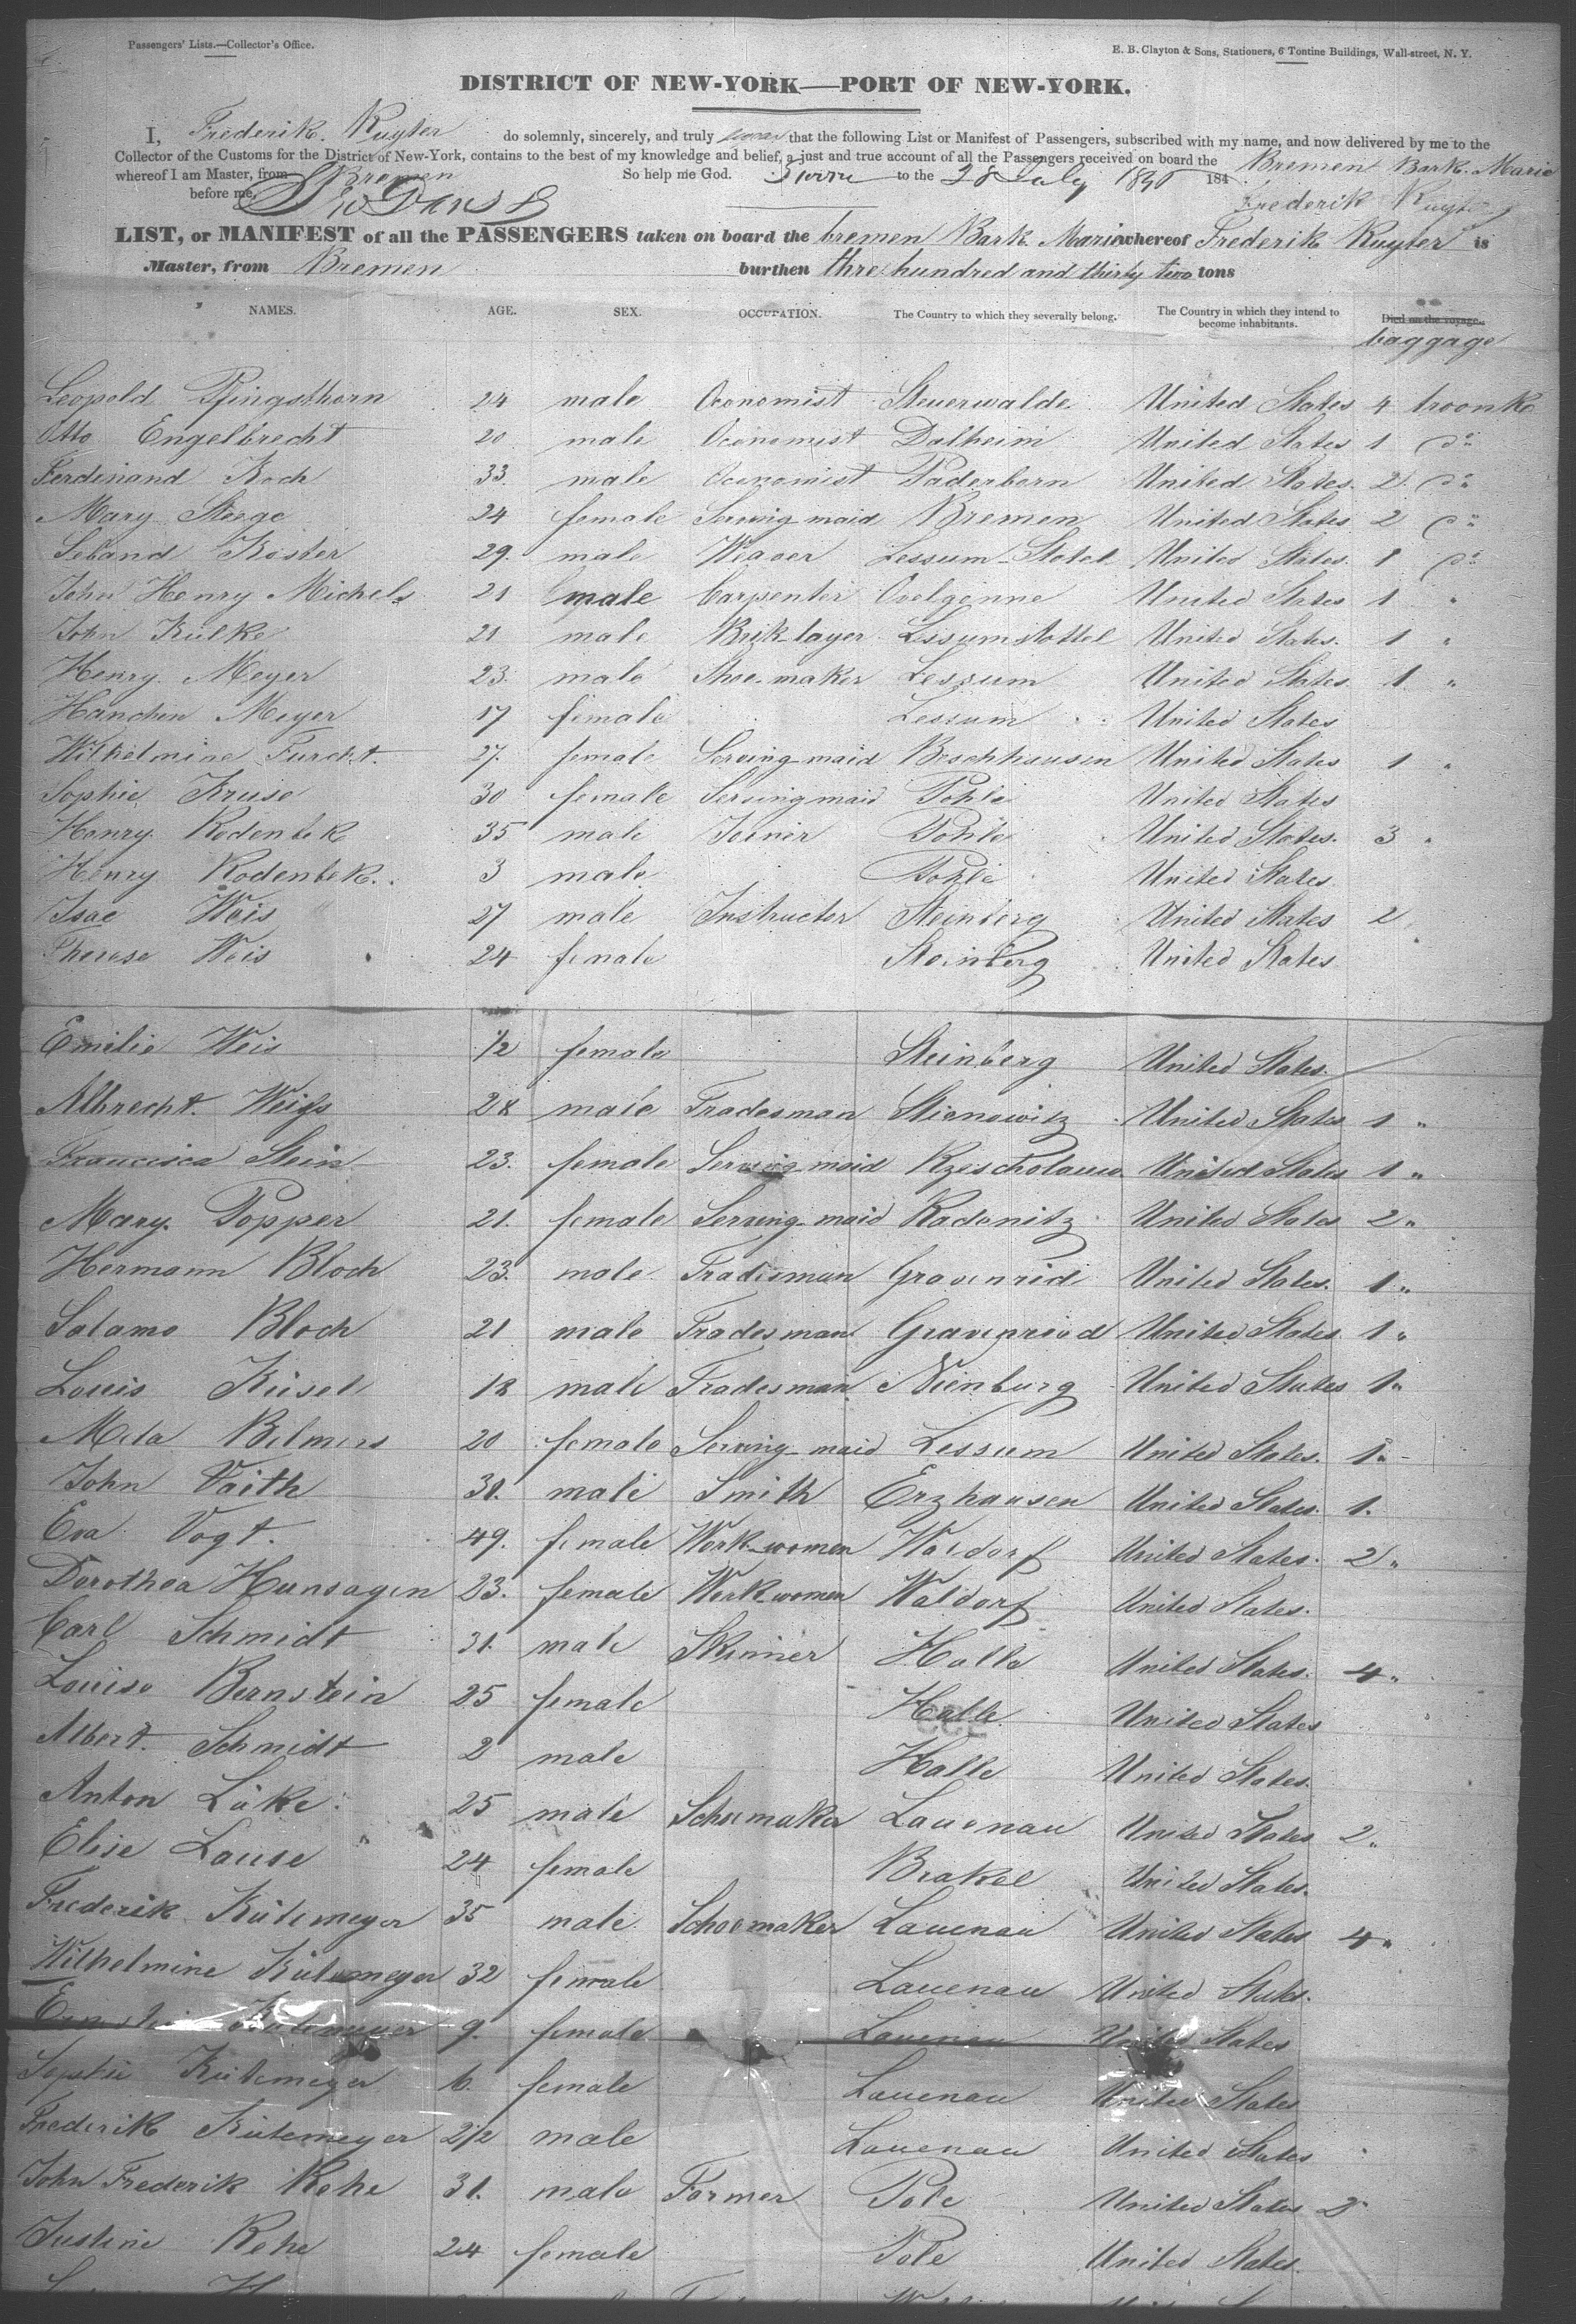 Passengers' Lists.—Collector's Office.
E. B. Clayton & Sons, Stationers, 6 Tontine Buildings, Wall-street, N. Y.
DISTRICT OF NEW-YORK—PORT OF NEW-YORK.
I, Frederik Ruyter do solemnly, sincerely, and truly swear that the following List or Manifest of Passengers, subscribed with my name, and now delivered by me to the
Collector of the Customs for the District of New-York, contains to the best of my knowledge and belief, a just and true account of all the Passengers received on board the Bremen Bark Marie
whereof I am Master, from Bremen So help me God. to the 28 July 184
before me, Frederik Ruyter
LIST, or MANIFEST of all the PASSENGERS taken on board the bremen Bark Marie whereof Frederik Ruyter is
Master, from Bremen burthen thre hundred and thirty two tons
NAMES. AGE. SEX. OCCUPATION. The Country to which they severally belong. The Country in which they intend to become inhabitants. Died on the voyage. baggage
Leopold Pfingsthorn 24 male Oconomist Steuerwalde United States 4 troonks
Otto Engelbrecht 20 male Oconomist Dalheim United States 1 do
Ferdinand Koch 33. male Oconomist Paderborn United States. 2 do
Mary Stege 24 female Serving maid Bremen United States 2 do
Leband Köster 29. male Weaver Lessum-Stotel United States. 1 do
John Henry Michels 21 male Carpenter Ovelgönne United States 1 "
John Kulke 21 male Brik-layer Lessumstottel United States. 1 "
Henry Meyer 23. male Shoe-maker Lessum United States 1 "
Hanchen Meyer 17 female Lessum United States
Wilhelmine Furcht. 27. female Serving-maid Beschhausen United States 1 "
Sophie Kruse 30 female Serving maid Pohle United States
Henry Rodenbek 35 male Joiner Pohle United States. 3 "
Henry Rodenbek. 3 male Pohle United States
Isac Weis 27 male Instructor Steinberg United States 2
Therese Weis 24 female Steinberg United States
Emilie Weis 1/2 female Steinberg United States.
Albrecht Weiss 28 male Tradesman Stienowitz United States 1 "
Francisca Stein 23. female Serving-maid United States 1 "
Mary Popper 21. female Serving-maid Radonitz United States 2 "
Hermann Bloch 23. male Tradesman Gravenrid United States. 1 "
Salamo Bloch 21 male Tradesman Gravenriod United States 1 "
Louis Küsel 18 male Tradesman Nienburg United States 1 "
Meta Bilmers 20 female Serving-maid Lessum United States. 1 "
John Vaith 31. male Smith Erzhausen United States. 1.
Eva Vogt. 49. female Work-women Waldorf United States. 2 "
Dorothea Hunsagen 23. female Workwomen Waldorf United States.
Carl Schmidt 31. male Skinner Halle United States. 4 "
Louise Bernstein 25 female Halle United States
Albert Schmidt 2 male Halle United States.
Anton Lüke 25 male Schumaker Lauenau United States 2 "
Elise Lause 24 female Brakel United States.
Frederik Kütemeyer 35 male Schoemaker Lauenau United States 4 "
Wilhelmine Kütemeyer 32 female Lauenau United States.
Kütemeyer 9. female Lauenau United States
Sophie Kütemeyer 6. female Lauenau United States
Frederik Kütemeyer 2 1/2 male Lauenau United States
John Frederik Rehe 31. male Farmer Pole United States 2 "
Justine Rehe 24 female Pole United States.